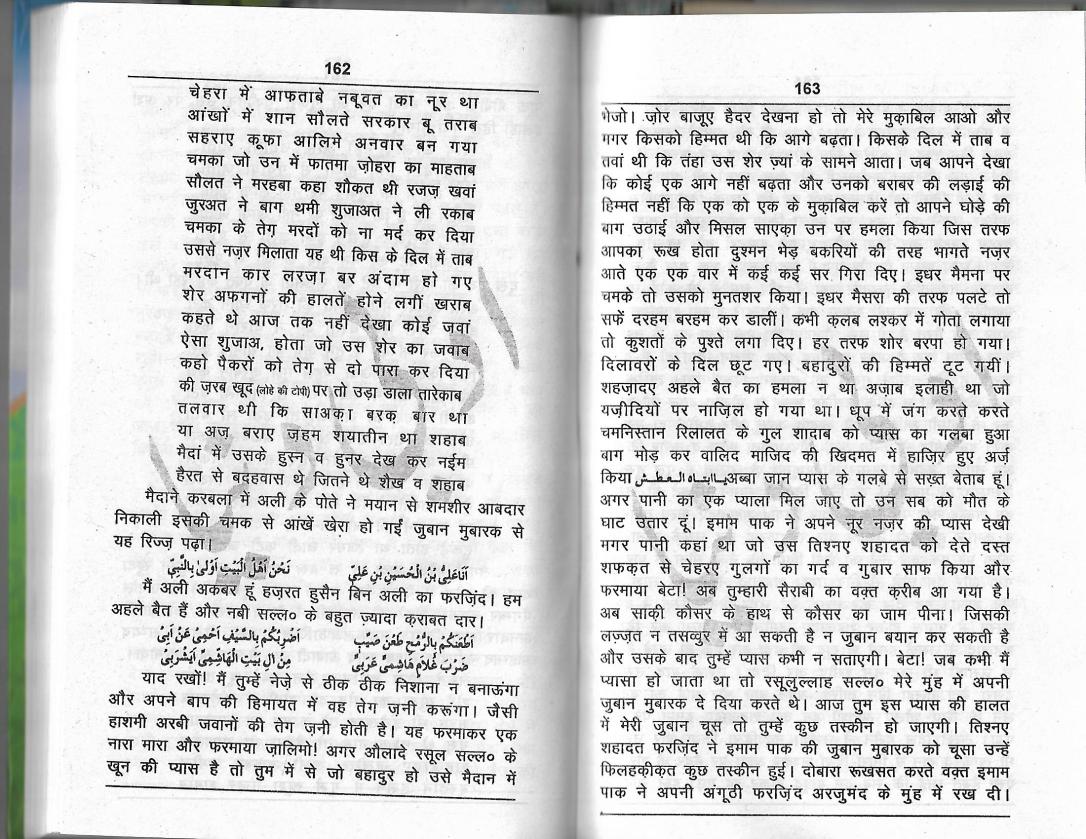 162
चेहरा में आफताबे नबूवत का नूर था
आंखों में शान सौलते सरकार बू तराब
सहराए कूफा आलिमे अनवार बन गया
चमका जो उन में फातमा ज़ोहरा का माहताब
सौलत ने मरहबा कहा शौकत थी रजज़ खवां
जुरअत ने बाग थमी शुजाअत ने ली रकाब
चमका के तेग़ मरदों को ना मर्द कर दिया
उससे नज़र मिलाता यह थी किस के दिल में ताब
मरदान कार लरज़ा बर अंदाम हो गए
शेर अफगनों की हालतें होने लगीं खराब
कहते थे आज तक नहीं देखा कोई जवां
ऐसा शुजाअ, होता जो उस शेर का जवाब
कहो पैकरों को तेग़ से दो पारा कर दिया
की ज़रब खूद (लोहे की टोपी) पर तो उड़ा डाला तारेकाब
तलवार थी कि साअक़ा बरक़ बार था
या अज़ बराए ज़हम शयातीन था शहाब
मैदां में उसके हुस्न व हुनर देख कर नईम
हैरत से बदहवास थे जितने थे शैख व शहाब
मैदाने करबला में अली के पोते ने मयान से शमशीर आबदार
निकाली इसकी चमक से आंखें खेरा हो गईं जुबान मुबारक से
यह रिज्ज़ पढ़ा।
اَنَاعَلِیُّ بْنُ الْحُسَیْنِ بْنِ عَلِیٍّ نَحْنُ اَهْلُ الْبَیْتِ اَوْلیٰ بِالنَّبِیِّ
मैं अली अकबर हूं हज़रत हुसैन बिन अली का फरज़िंद। हम
अहले बैत हैं और नबी सल्ल० के बहुत ज़्यादा क़राबत दार।
اَطْعَنُکُمْ بِالرُّمْحِ طَعْنَ صَیِّبٍ اَضْرِبُکُمْ بِالسَّیْفِ اَحْمِیْ عَنْ اَبِیْ
ضَرْبَ غُلَامٍ هَاشِمِیٍّ عَرَبِیٍّ مِنْ اٰلِ بَیْتِ الْهَاشِمِیِّ
याद रखों! मैं तुम्हें नेज़े से ठीक ठीक निशाना न बनाऊंगा
और अपने बाप की हिमायत में वह तेग ज़नी करूंगा। जैसी
हाशमी अरबी जवानों की तेग ज़नी होती है। यह फरमाकर एक
नारा मारा और फरमाया ज़ालिमो! अगर औलादे रसूल सल्ल० के
खून की प्यास है तो तुम में से जो बहादुर हो उसे मैदान में
163
भेजो। ज़ोर बाजूए हैदर देखना हो तो मेरे मुक़ाबिल आओ और
मगर किसको हिम्मत थी कि आगे बढ़ता। किसके दिल में ताब व
तवां थी कि तंहा उस शेर ज़्यां के सामने आता। जब आपने देखा
कि कोई एक आगे नहीं बढ़ता और उनको बराबर की लड़ाई की
हिम्मत नहीं कि एक को एक के मुक़ाबिल करें तो आपने घोड़े की
बाग उठाई और मिसल साएक़ा उन पर हमला किया जिस तरफ
आपका रूख होता दुश्मन भेड़ बकरियों की तरह भागते नज़र
आते एक एक वार में कई कई सर गिरा दिए। इधर मैमना पर
चमके तो उसको मुनतशर किया। इधर मैसरा की तरफ पलटे तो
सफें दरहम बरहम कर डालीं। कभी क़लब लश्कर में गोता लगाया
तो कुशतों के पुश्ते लगा दिए। हर तरफ शोर बरपा हो गया।
दिलावरों के दिल छूट गए। बहादुरों की हिम्मतें टूट गयीं।
शहज़ादए अहले बैत का हमला न था अज़ाब इलाही था जो
यज़ीदियों पर नाज़िल हो गया था। धूप में जंग करते करते
चमनिस्तान रिलालत के गुल शादाब को प्यास का गलबा हुआ
बाग मोड़ कर वालिद माजिद की खिदमत में हाज़िर हुए अर्ज़
किया يا ابتاه العطش अब्बा जान प्यास के गलबे से सख़्त बेताब हूं।
अगर पानी का एक प्याला मिल जाए तो उन सब को मौत के
घाट उतार दूं। इमाम पाक ने अपने नूर नज़र की प्यास देखी
मगर पानी कहां था जो उस तिश्नए शहादत को देते दस्त
शफक़त से चेहरए गुलगों का गर्द व गुबार साफ किया और
फरमाया बेटा! अब तुम्हारी सैराबी का वक़्त क़रीब आ गया है।
अब साक़ी कौसर के हाथ से कौसर का जाम पीना। जिसकी
लज़्ज़त न तसव्वुर में आ सकती है न जुबान बयान कर सकती है
और उसके बाद तुम्हें प्यास कभी न सताएगी। बेटा! जब कभी मैं
प्यासा हो जाता था तो रसूलुल्लाह सल्ल० मेरे मुंह में अपनी
जुबान मुबारक दे दिया करते थे। आज तुम इस प्यास की हालत
में मेरी जुबान चूस तो तुम्हें कुछ तस्कीन हो जाएगी। तिश्नए
शहादत फरज़िंद ने इमाम पाक की जुबान मुबारक को चूसा उन्हें
फिलहक़ीक़त कुछ तस्कीन हुई। दोबारा रूखसत करते वक़्त इमाम
पाक ने अपनी अंगूठी फरज़िंद अरजुमंद के मुंह में रख दी।